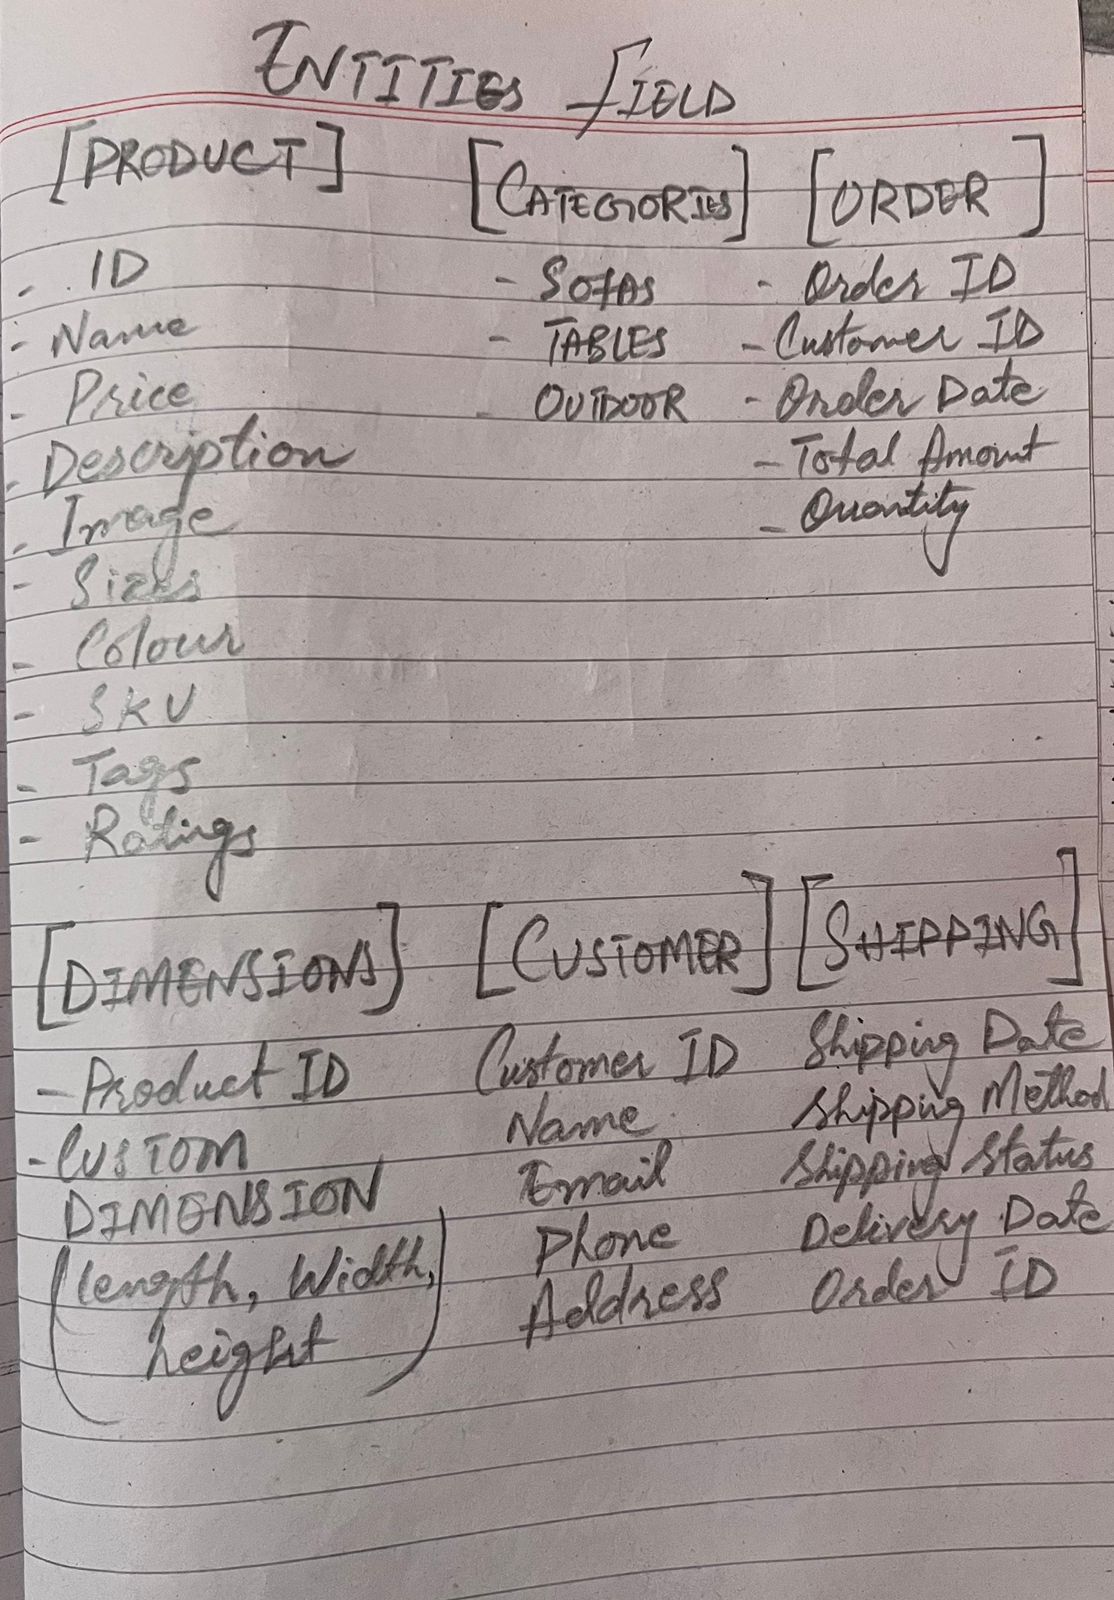 ENTITIES FIELD
[PRODUCT]
- ID
- Name
- Price
- Description
- Image
- Sizes
- Colour
- SKU
- Tags
- Ratings
[CATEGORIES]
- SOFAS
- TABLES
- OUTDOOR
[ORDER]
- Order ID
- Customer ID
- Order Date
- Total Amount
- Quantity
[DIMENSIONS]
- Product ID
- CUSTOM
DIMENSION
(length, Width,
height)
[CUSTOMER]
Customer ID
Name
Email
Phone
Address
[SHIPPING]
Shipping Date
Shipping Method
Shipping Status
Delivery Date
Order ID